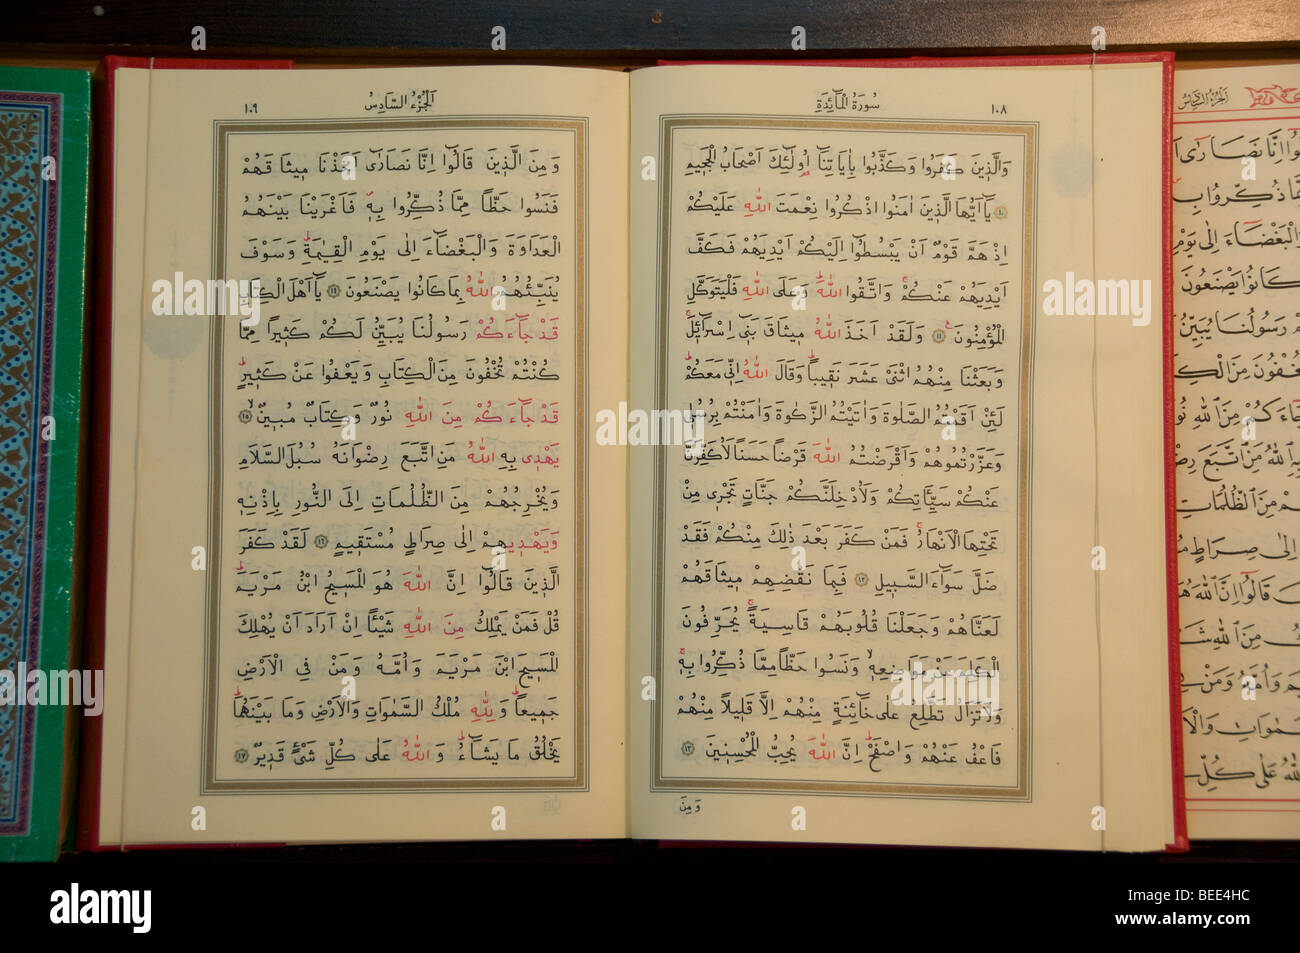 سورة المآئدة
١٠٨
والّذين كفروا وكذّبوا باٰياتنا اولٰئك اصحاب الجحيم
١٠ يآ ايّها الّذين اٰمنوا اذكروا نعمت الله عليكم
اذ همّ قوم ان يبسطوا اليكم ايديهم فكفّ
ايديهم عنكم واتّقوا الله وعلى الله فليتوكّل
المؤمنون ١١ ولقد اخذ الله ميثاق بنى اسرآئل
وبعثنا منهم اثنى عشر نقيبا وقال الله انّى معكم
لئن اقمتم الصّلٰوة واٰتيتم الزّكٰوة واٰمنتم برسلى
وعزّرتموهم واقرضتم الله قرضا حسنا لاكفّرنّ
عنكم سيّئاتكم ولادخلنّكم جنّات تجرى من
تحتها الانهار فمن كفر بعد ذٰلك منكم فقد
ضلّ سوآء السّبيل ١٢ فبما نقضهم ميثاقهم
لعنّاهم وجعلنا قلوبهم قاسية يحرّفون
الكلم عن مواضعه ونسوا حظّا ممّا ذكّروا به
ولا تزال تطّلع على خآئنة منهم الّا قليلا منهم
فاعف عنهم واصفح انّ الله يحبّ المحسنين ١٣
ومن
الجزء السّادس
١٠٩
ومن الّذين قالوا انّا نصارٰى اخذنا ميثاقهم
فنسوا حظّا ممّا ذكّروا به فاغرينا بينهم
العداوة والبغضآء الى يوم القيٰمة وسوف
ينبّئهم الله بما كانوا يصنعون ١٤ يآ اهل الكتاب
قد جآءكم رسولنا يبيّن لكم كثيرا ممّا
كنتم تخفون من الكتاب ويعفوا عن كثير
قد جآءكم من الله نور وكتاب مبين ١٥
يهدى به الله من اتّبع رضوانه سبل السّلام
ويخرجهم من الظّلمات الى النّور باذنه
ويهديهم الى صراط مستقيم ١٦ لقد كفر
الّذين قالوا انّ الله هو المسيح ابن مريم
قل فمن يملك من الله شيئا ان اراد ان يهلك
المسيح ابن مريم وامّه ومن فى الارض
جميعا ولله ملك السّمٰوات والارض وما بينهما
يخلق ما يشآء والله على كلّ شئ قدير ١٧
alamy
Image ID: BEE4HC
www.alamy.com